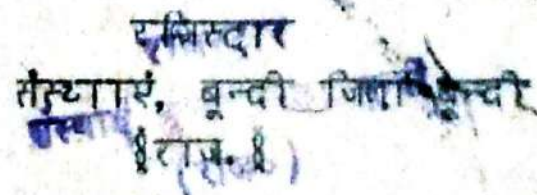 रजिस्ट्रार
संस्थाएं, बून्दी जिला बून्दी
§राज.§